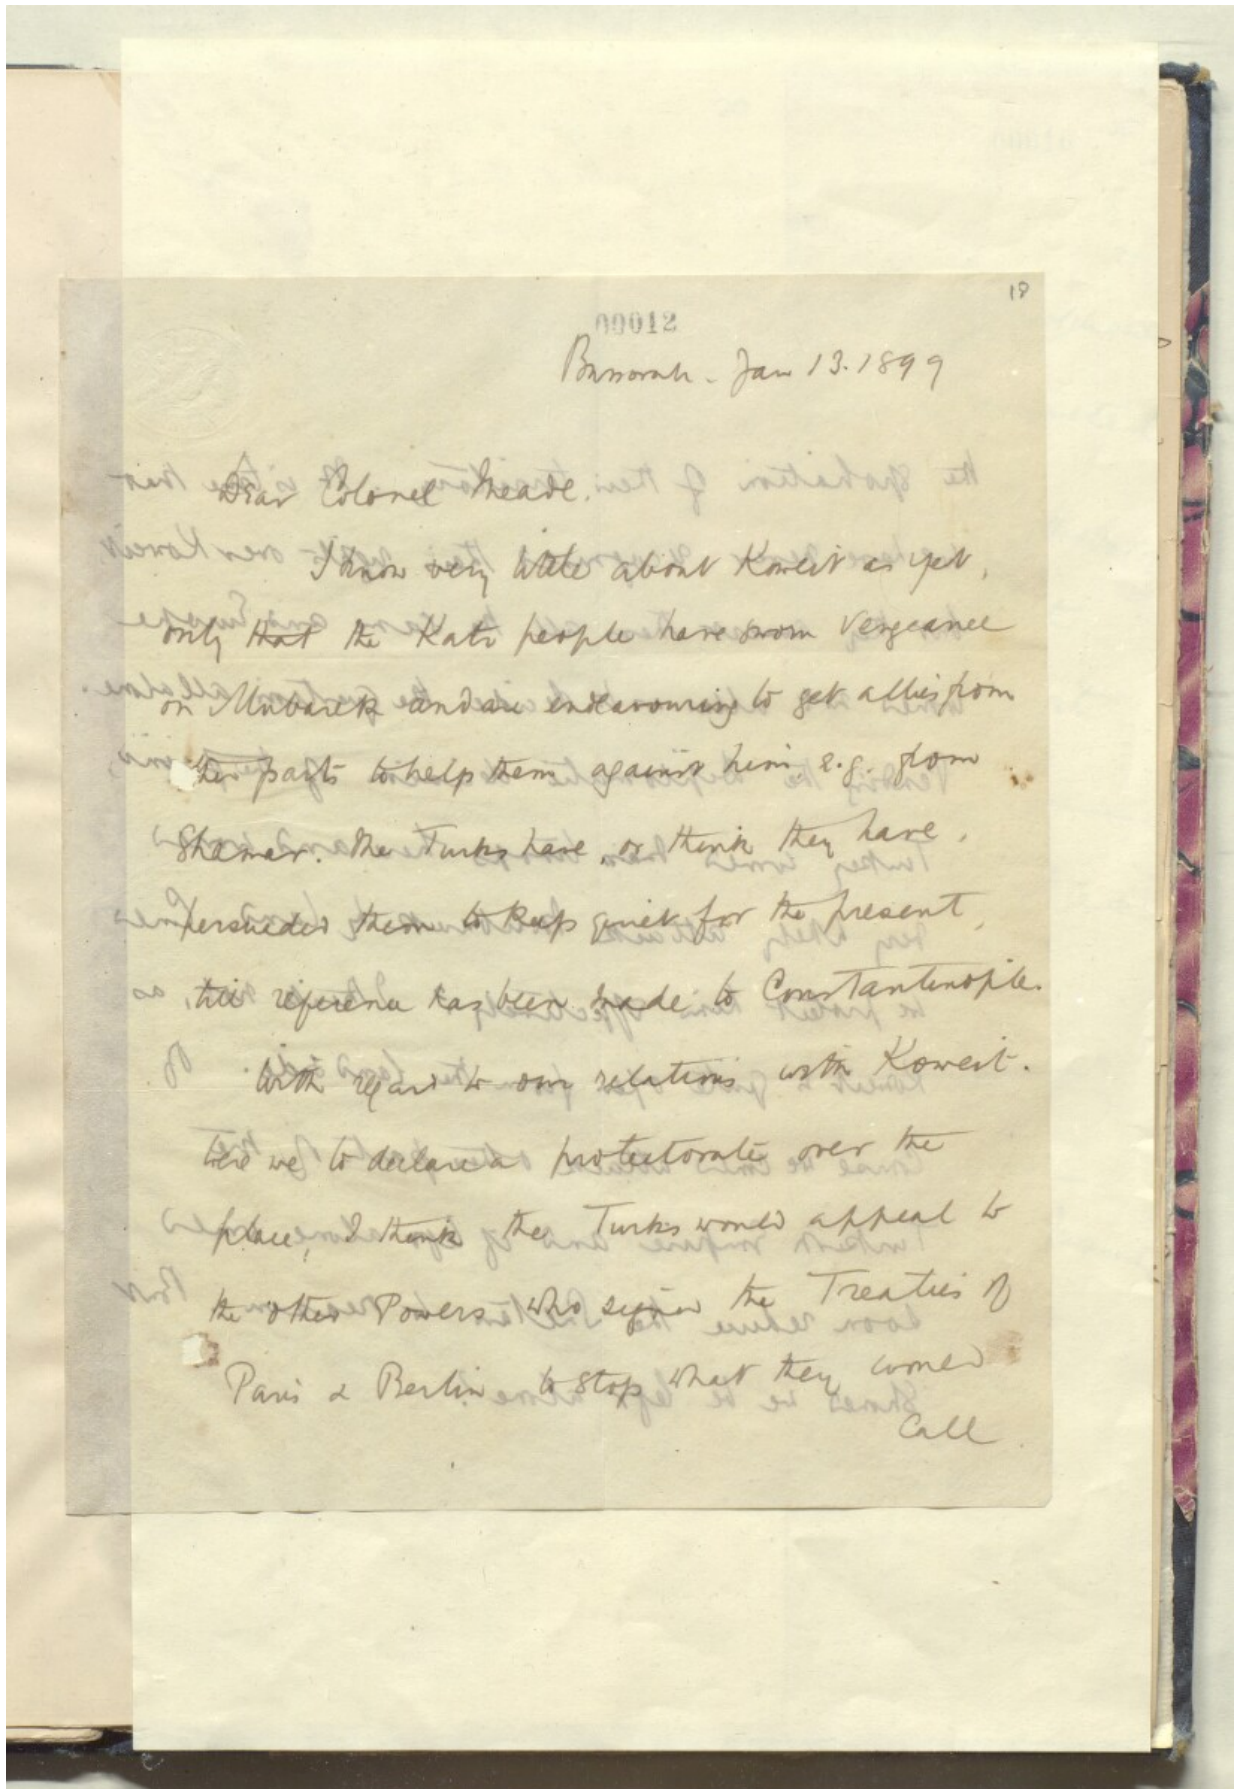 18
00012
Bussorah - Jan 13. 1899
Dear Colonel Meade.
I know very little about Koweit as yet,
only that the Katr people have sworn vengeance
on Mubarek and are endeavouring to get allies from
other parts to help them against him. e.g. from
Shamar. The Turks have, or think they have,
persuaded them to keep quiet for the present,
till reference has been made to Constantinople.
With regard to our relations with Koweit.
Were we to declare a protectorate over the
place, I think the Turks would appeal to
the other Powers who signed the Treaties of
Paris & Berlin to stop what they would
Call